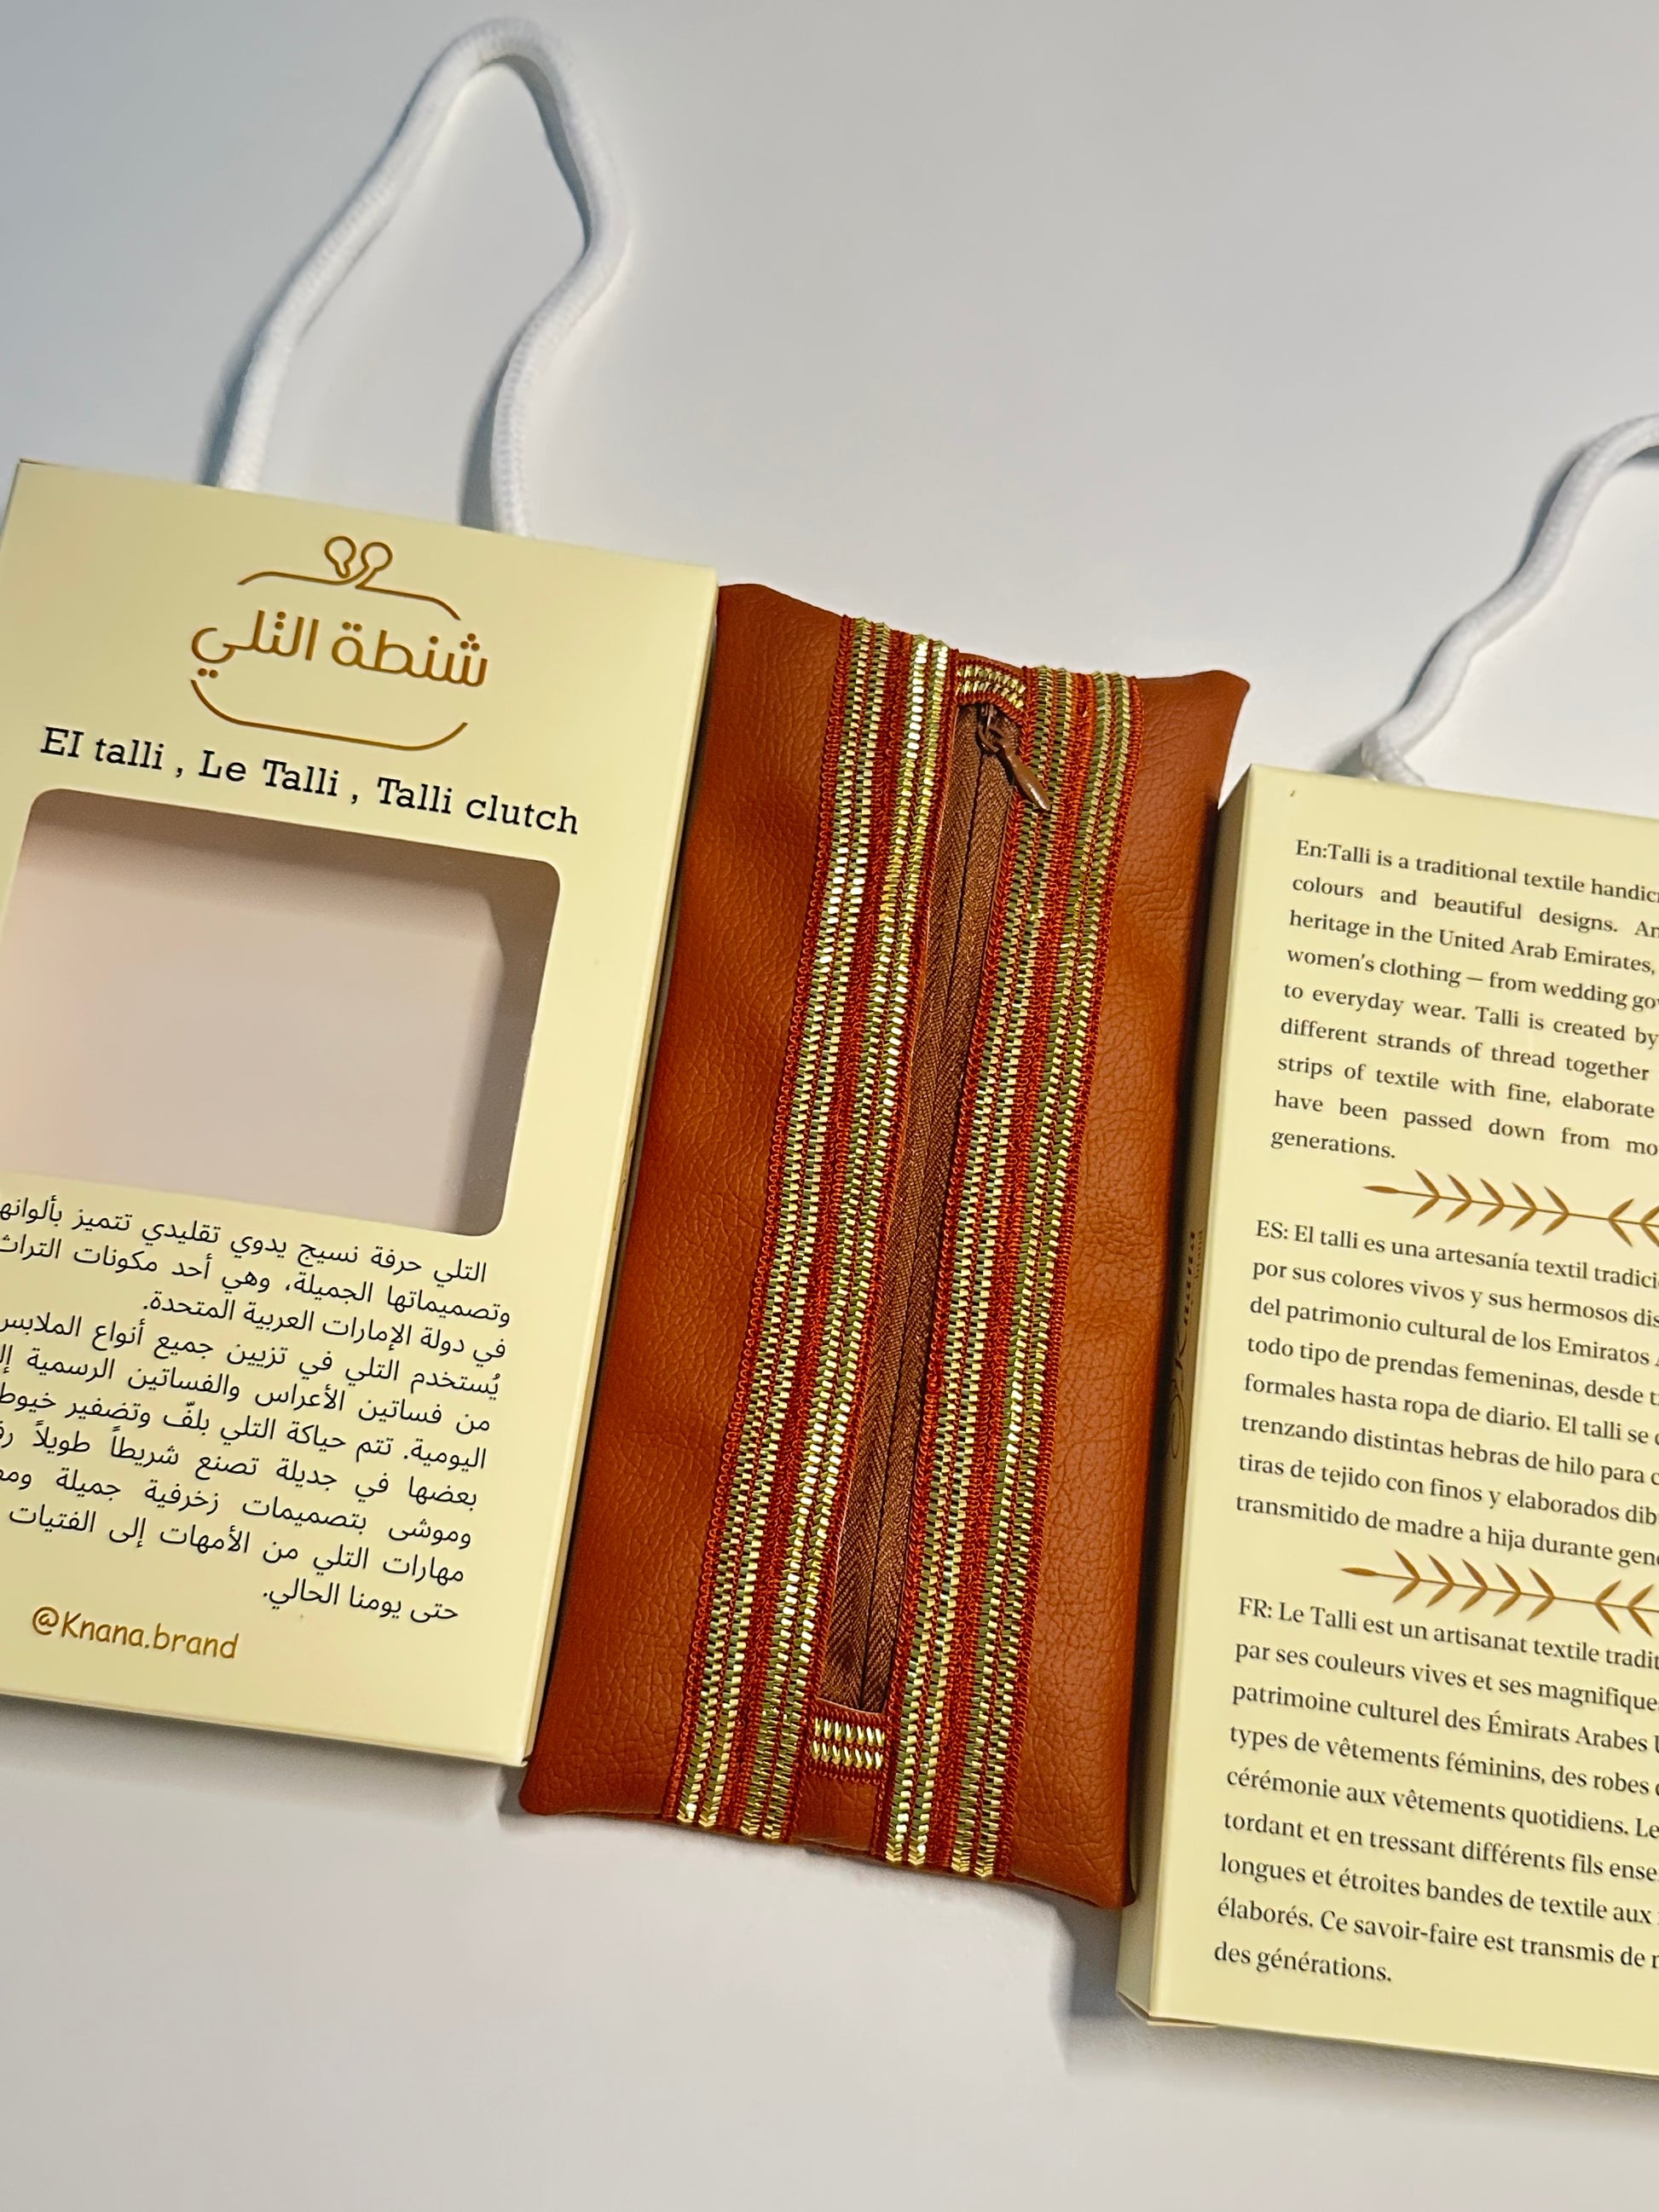 شنطة التلي
El talli , Le Talli , Talli clutch
التلي حرفة نسيج يدوي تقليدي تتميز بألوانها
وتصميماتها الجميلة، وهي أحد مكونات التراث
في دولة الإمارات العربية المتحدة.
يُستخدم التلي في تزيين جميع أنواع الملابس
من فساتين الأعراس والفساتين الرسمية
اليومية. تتم حياكة التلي بلفّ وتضفير خيوط
بعضها في جديلة تصنع شريطاً طويلاً
وموشى بتصميمات زخرفية جميلة
مهارات التلي من الأمهات إلى الفتيات
حتى يومنا الحالي.
@Knana.brand
Knana
brand
En:Talli is a traditional textile
colours and beautiful designs.
heritage in the United Arab Emirates,
women's clothing — from wedding
to everyday wear. Talli is created by
different strands of thread together
strips of textile with fine, elaborate
have been passed down from
generations.
ES: El talli es una artesanía textil
por sus colores vivos y sus hermosos
del patrimonio cultural de los Emiratos
todo tipo de prendas femeninas, desde
formales hasta ropa de diario. El talli se
trenzando distintas hebras de hilo para
tiras de tejido con finos y elaborados
transmitido de madre a hija durante
FR: Le Talli est un artisanat textile
par ses couleurs vives et ses
patrimoine culturel des Émirats Arabes
types de vêtements féminins, des robes
cérémonie aux vêtements quotidiens. Le
tordant et en tressant différents fils
longues et étroites bandes de textile aux
élaborés. Ce savoir-faire est transmis de
des générations.